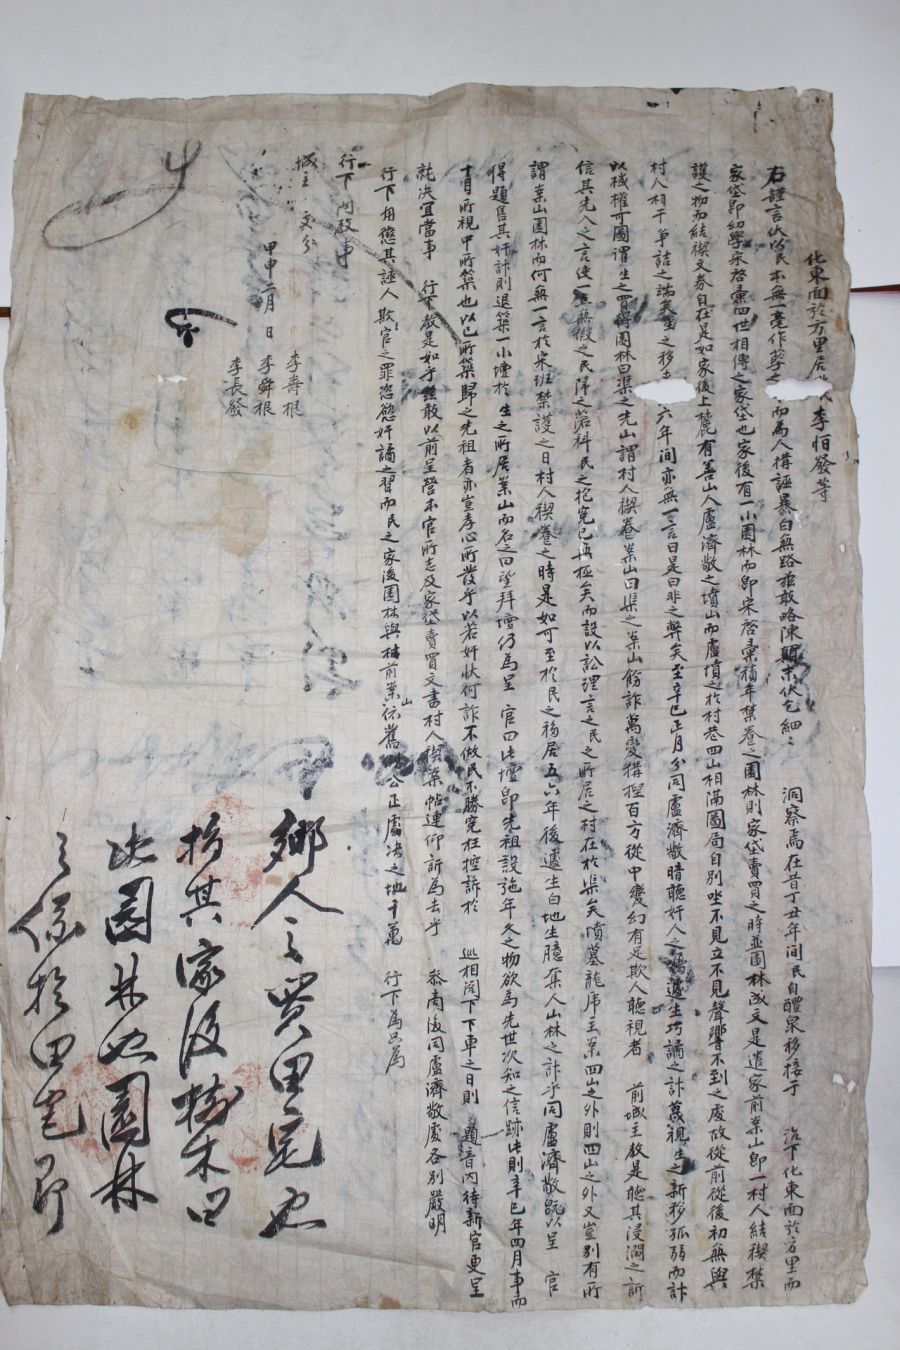 化東面於方里居 李恒發等
右謹言伏以民本無一毫作孽之 而爲人構誣暴白無路玆敢略陳顚末伏乞細〻 洞察焉在昔丁丑年間民自醴泉移接于 治下化東面於方里而
家垈卽幼學宋啓彙四世相傳之家垈也家後有一小園林而卽宋啓彙積年禁養之園林則家垈賣買之時並園林成文是遣家前案山卽一村人結稧禁
護之物而結稧文券自在是如家後上麓有善山人盧濟敬之墳山而盧墳之於村巷四山相滿圖局自別坐不見立不見聲響不到之處故從前從後初無與
村人相干爭詰之端矣生之移 六年間亦無一言曰是曰非之弊矣至辛巳正月分同盧濟敬暗聽奸人之 遽生巧譎之計蔑視生之新移孤弱而計
以機權可圖謂生之買得園林曰渠之先山謂村人稧養案山曰渠之案山餙詐萬變構揑百方從中變幻有是欺人聽視者 前城主敎是聽其浸潤之訴
信其先入之言使一 無據之民歸之 科民之抱寃已爲極矣而設以訟理言之民之所居之村在於渠矣墳墓龍虎主案四山之外則四山之外又豈別有所
謂案山園林而何無一言於宋班禁護之日村人稧養之時是如可至於民之移居五六年後遽生白地生臆奪人山林之計乎同盧濟敬旣以呈 官
得題售其奸計則退築一小壇於生之所居案山而名之曰望拜壇仍爲呈 官曰此壇卽先祖設施年久之物欲爲先世次知之信跡此則辛巳年四月事而
十目所視甲所築也以己所築歸之先祖者亦豈孝心所發乎以若奸狀何詐不做民不勝寃枉控訴於 巡相閤下下車之日則 題音內待新官更呈
就決宜當事 行下敎是如乎玆敢以前呈營本官所志及家垈賣買文書村人稧案帖連仰訴爲去乎 參商後同盧濟敬處各別嚴明
行下用懲其誣人欺官之罪恣慾奸譎之習而民之家後園林與村前案山依舊 公正處決之地千萬 行下爲只爲
行下向敎事
城主 處分
甲申二月 日
李壽根
李舜根
李長發
鄕人之買田宅也
於其家後樹木曰
此園林也園林
之係於田宅卽